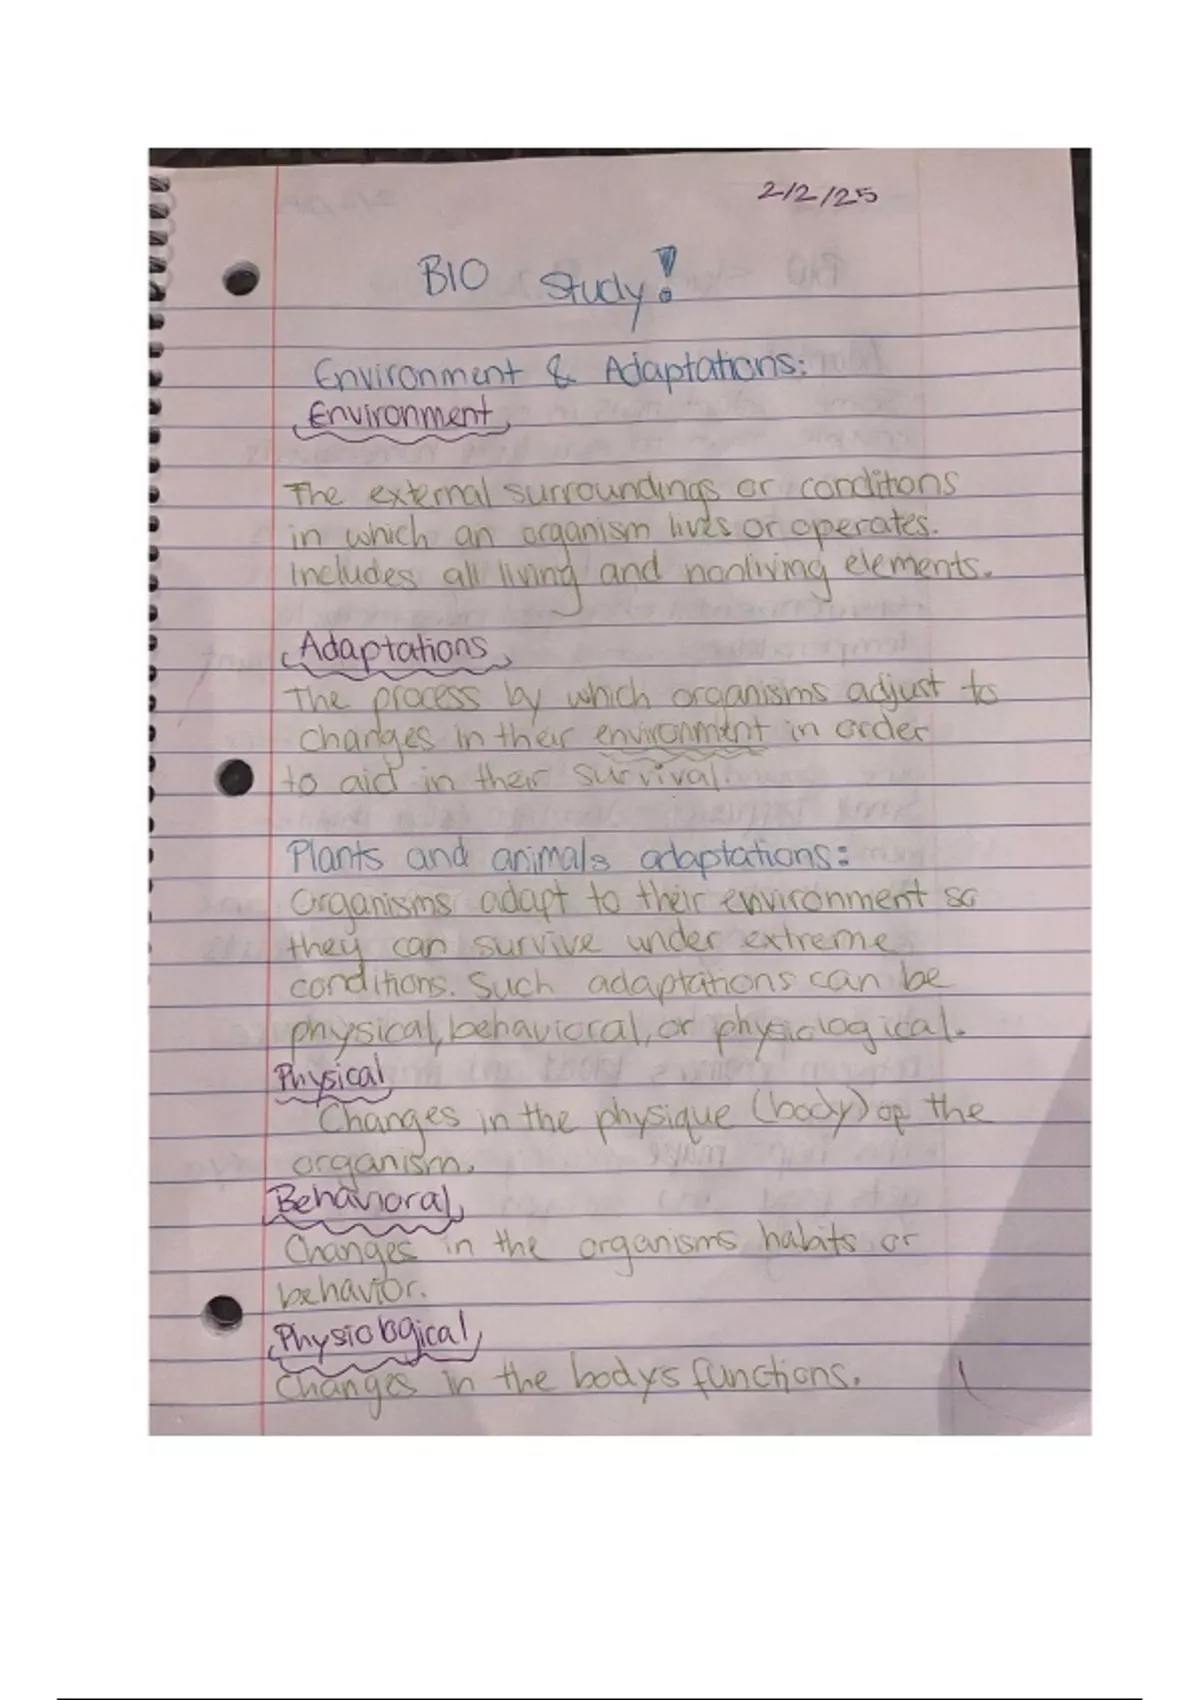 2/2/25
BIO Study!
Environment & Adaptations:
Environment
The external surroundings or conditions
in which an organism lives or operates.
Includes all living and nonliving elements.
Adaptations
The process by which organisms adjust to
changes in their environment in order
to aid in their survival
Plants and animals adaptations:
Organisms adapt to their environment so
they can survive under extreme
conditions. Such adaptations can be
physical, behavioral, or physiological.
Physical
Changes in the physique (body) of the
organism.
Behavioral
Changes in the organisms habits or
behavior.
Physiological
Changes in the body's functions.